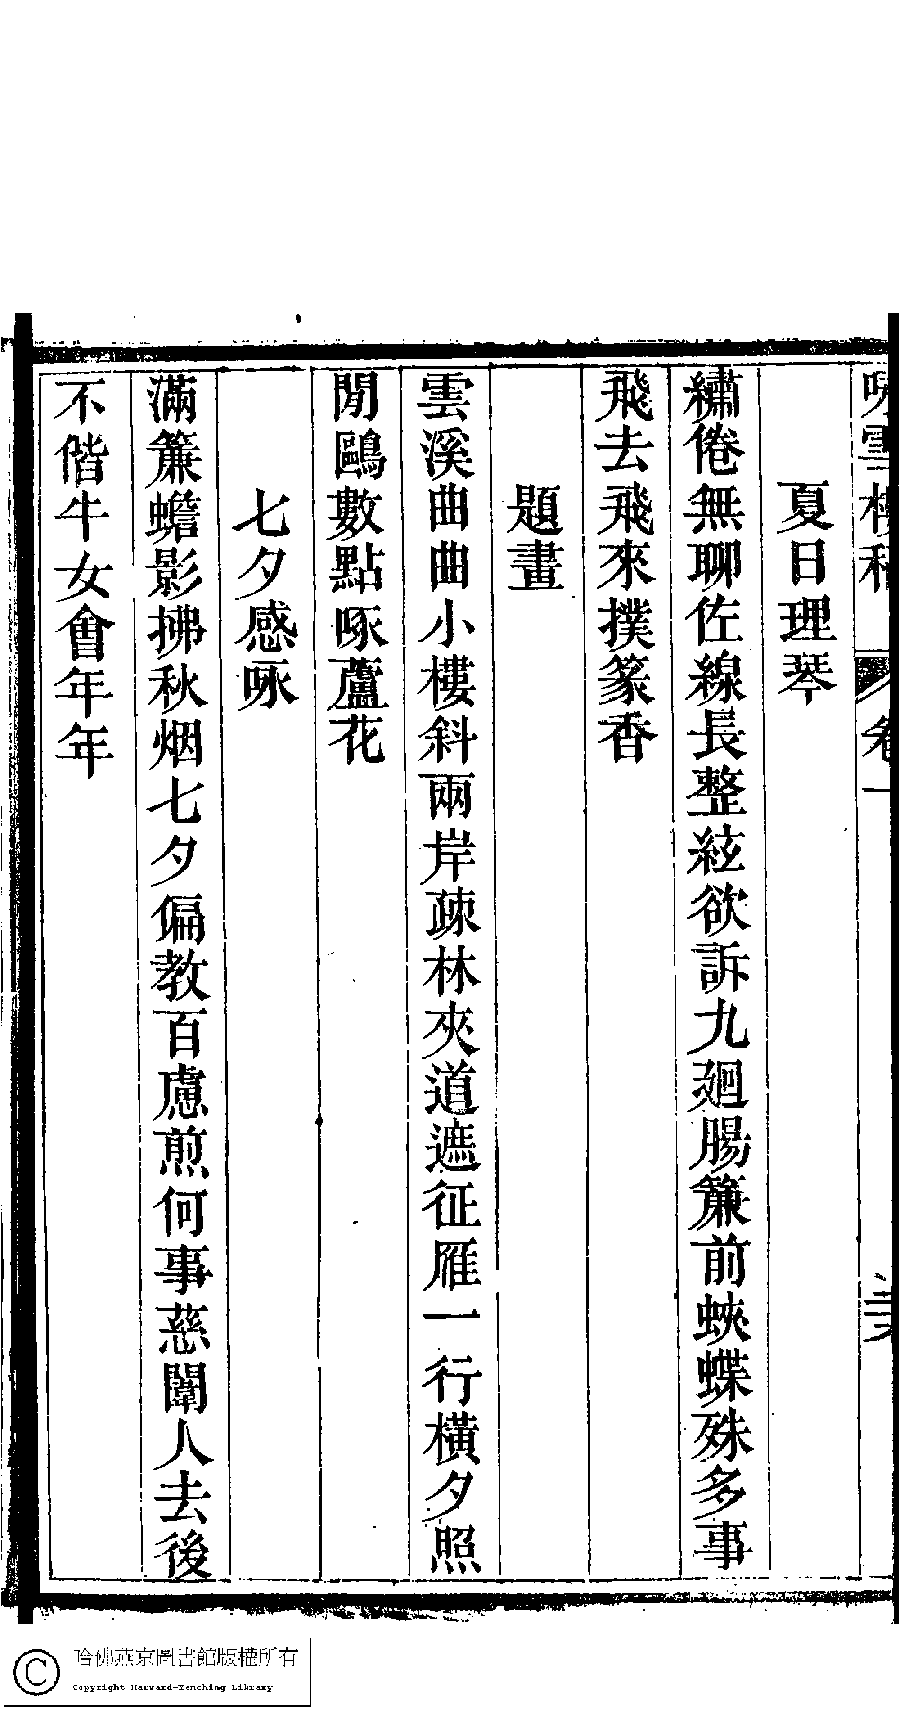 咏雪樓稿 卷一
夏日理琴
繡倦無聊佐線長整絃欲訴九廻腸簾前蛺蝶殊多事
飛去飛來撲篆香
題畫
雲溪曲曲小樓斜兩岸疎林夾道遮征雁一行橫夕照
閒鷗數點啄蘆花
七夕感咏
滿簾蟾影拂秋烟七夕偏教百慮煎何事慈闈人去後
不偕牛女會年年
哈佛燕京圖書館版權所有
Copyright Harvard-Yenching Library